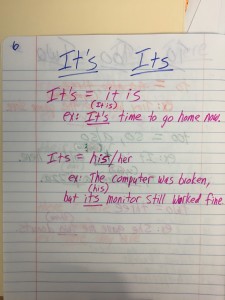 6
It's Its
It's = it is
(It is)
ex: It's time to go home now.
Its = his/her
ex: The computer was broken,
(his)
but its monitor still worked fine